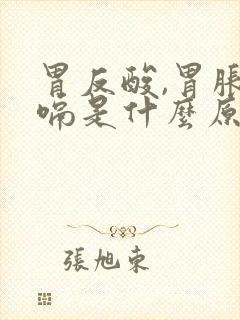 胃反酸,胃脹
嗝是什麼原
張旭東